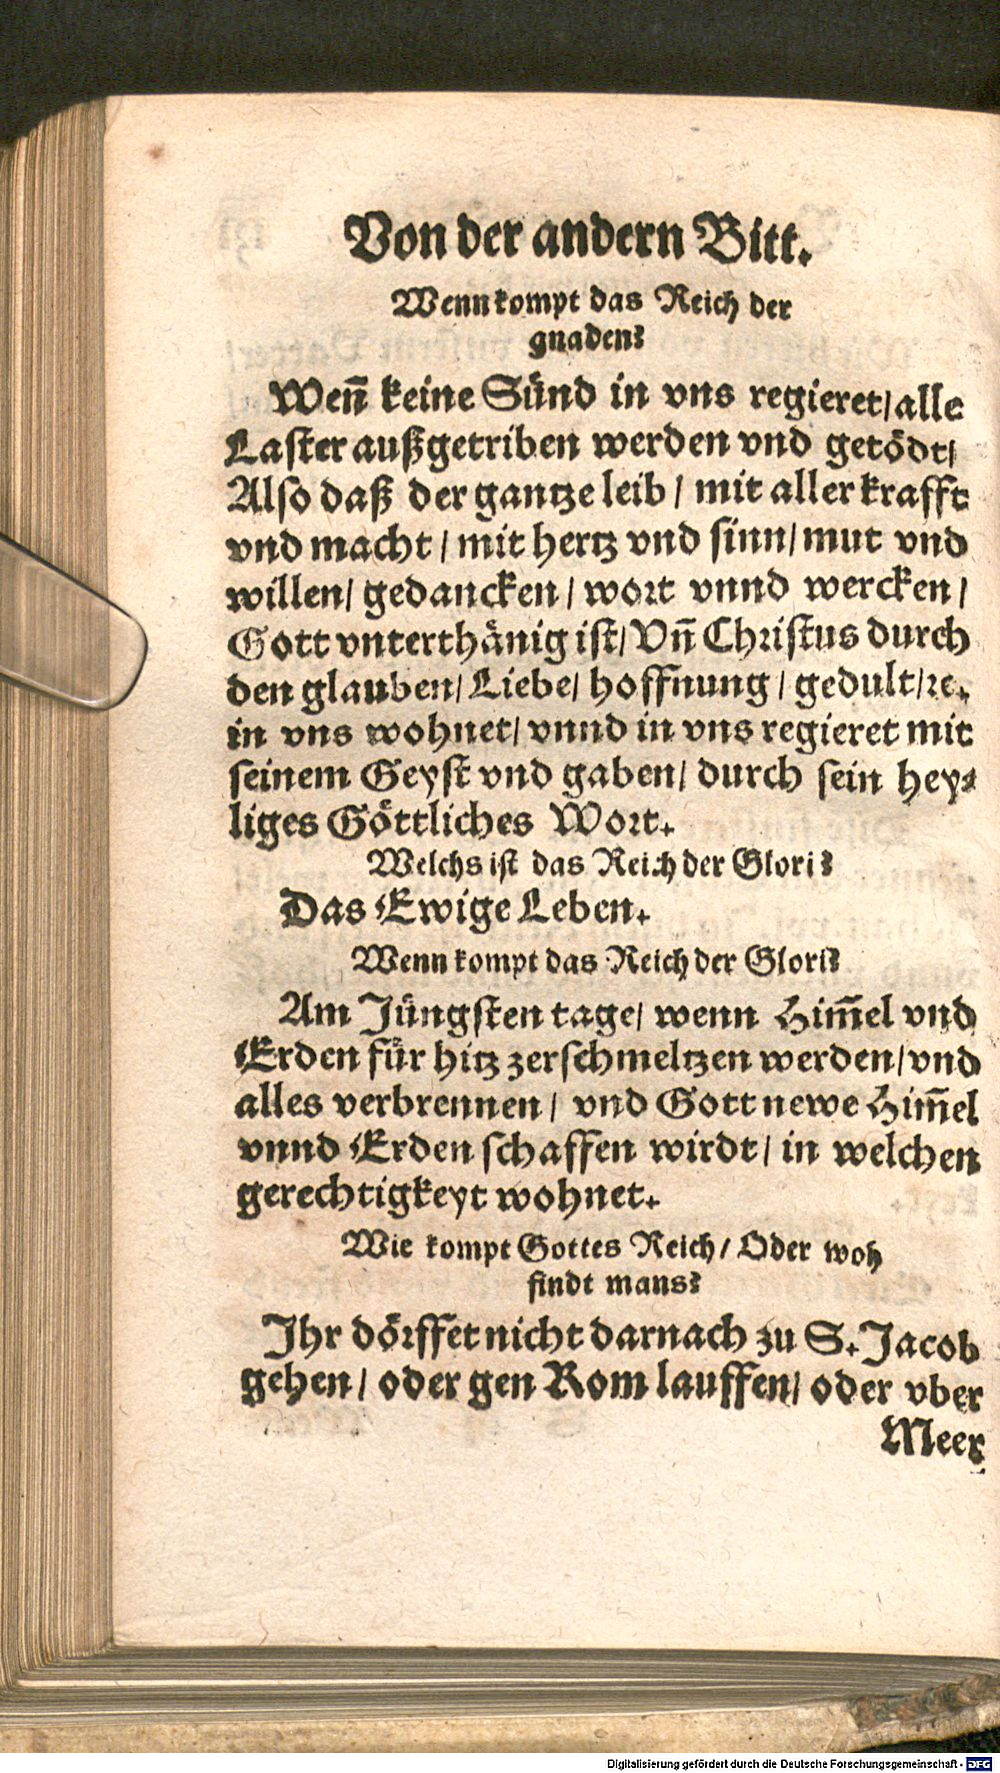 Von der andern Bitt.
Wenn kompt das Reich der
gnaden?
Weñ keine Sünd in vns regieret/ alle
Laster außgetriben werden vnd getödt/
Also daß der gantze leib / mit aller krafft
vnd macht / mit hertz vnd sinn/ mut vnd
willen/ gedancken / wort vnnd wercken /
Gott vnterthänig ist/ Vñ Christus durch
den glauben/ Liebe/ hoffnung / gedult/ ꝛc.
in vns wohnet/ vnnd in vns regieret mit
seinem Geyst vnd gaben/ durch sein hey⸗
liges Göttliches Wort.
Welchs ist das Reich der Glori?
Das Ewige Leben.
Wenn kompt das Reich der Glori?
Am Jüngsten tage/ wenn Him̃el vnd
Erden für hitz zerschmeltzen werden/ vnd
alles verbrennen / vnd Gott newe Him̃el
vnnd Erden schaffen wirdt / in welchen
gerechtigkeyt wohnet.
Wie kompt Gottes Reich / Oder woh
findt mans?
Jhr dörffet nicht darnach zu S. Jacob
gehen / oder gen Rom lauffen/ oder vber
Meer
Digitalisierung gefördert durch die Deutsche Forschungsgemeinschaft - DFG